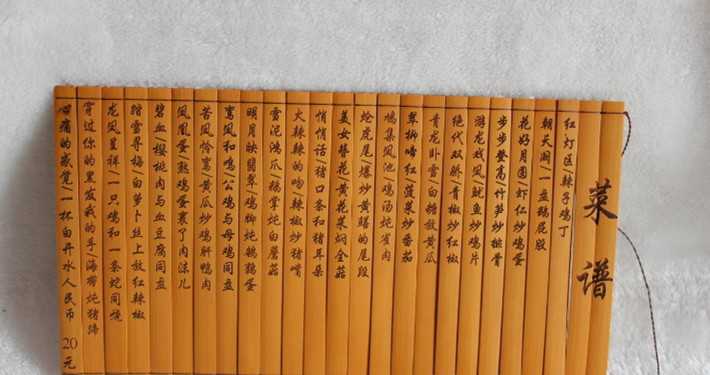 菜谱
红灯区/辣子鸡丁
朝天阙/一盘鹅屁股
花好月圆/虾仁炒鸡蛋
步步登高/竹笋炒排骨
游龙戏凤/鱿鱼炒鸡片
绝代双骄/青椒炒红椒
青龙卧雪/白糖放黄瓜
翠柳啼红/菠菜炒番茄
鸠集凤池/鸡汤炖雀肉
蛤虎尾/爆炒黄鳝的尾段
美女簪花/黄花菜焖全菇
悄悄话/猪口条和猪耳朵
火辣辣的吻/辣椒炒猪嘴
雪泥鸿爪/鹅掌炖白蘑菇
明月映翡翠/鸡脚炖鹌鹑蛋
鸾凤和鸣/公鸡与母鸡同盘
苦凤怜鸾/黄瓜炒鸡肝鸭肉
凤凰蛋/熟鸡蛋裹了肉淙儿
碧血樱桃/肉与血豆腐同盘
踏雪寻梅/白萝卜丝上放红辣椒
龙凤呈祥/一只鸡和一条蛇同烧
穿过你的黑发我的手/海带炖猪蹄
心痛的感觉/一杯白开水人民币20元